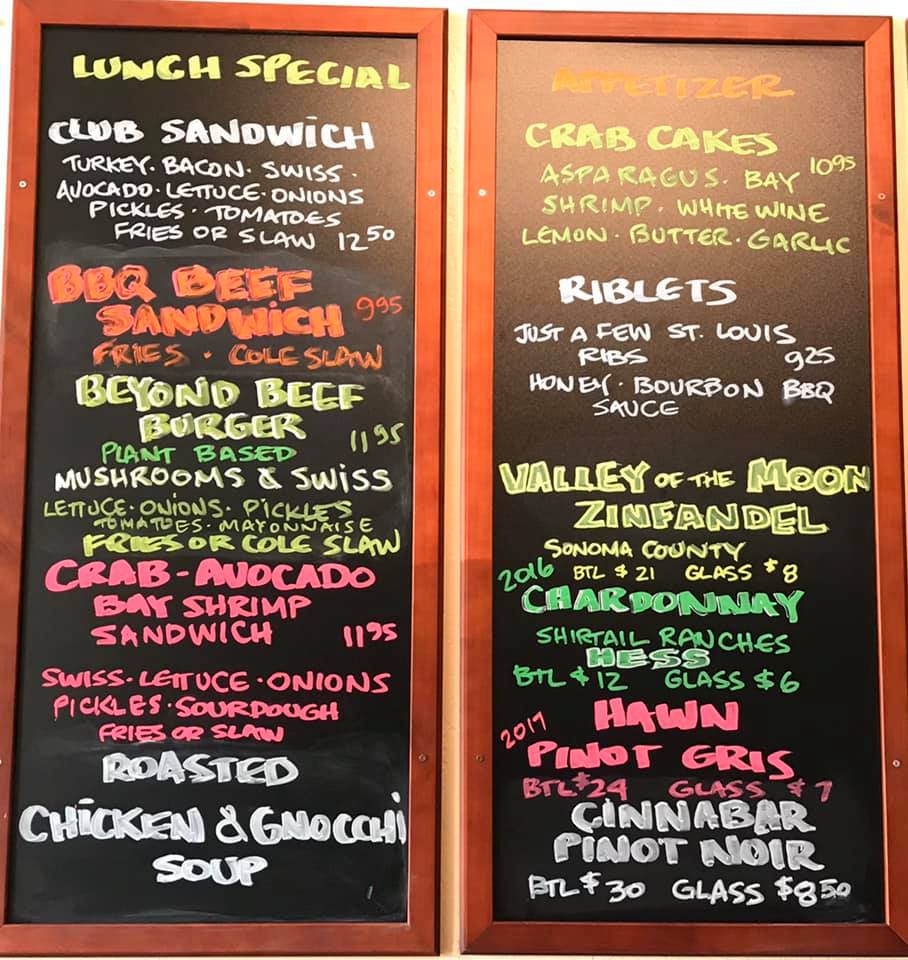 LUNCH SPECIAL
CLUB SANDWICH
TURKEY. BACON. SWISS.
AVOCADO. LETTUCE. ONIONS
PICKLES. TOMATOES
FRIES OR SLAW 12 50
BBQ BEEF
SANDWICH 9 95
FRIES . COLE SLAW
BEYOND BEEF
BURGER 11 95
PLANT BASED
MUSHROOMS & SWISS
LETTUCE. ONIONS. PICKLES
TOMATOES. MAYONNAISE
FRIES OR COLE SLAW
CRAB-AVOCADO
BAY SHRIMP
SANDWICH 11 95
SWISS. LETTUCE. ONIONS
PICKLES. SOURDOUGH
FRIES OR SLAW
ROASTED
CHICKEN & GNOCCHI
SOUP
APPETIZER
CRAB CAKES
ASPARAGUS. BAY 10 95
SHRIMP. WHITE WINE
LEMON. BUTTER. GARLIC
RIBLETS
JUST A FEW ST. LOUIS
RIBS 9 25
HONEY. BOURBON BBQ
SAUCE
VALLEY OF THE MOON
ZINFANDEL
SONOMA COUNTY
2016 BTL $ 21 GLASS $ 8
CHARDONNAY
SHIRTAIL RANCHES
HESS
BTL $ 12 GLASS $ 6
2017 HAWN
PINOT GRIS
BTL $ 24 GLASS $ 7
CINNABAR
PINOT NOIR
BTL $ 30 GLASS $ 8 50